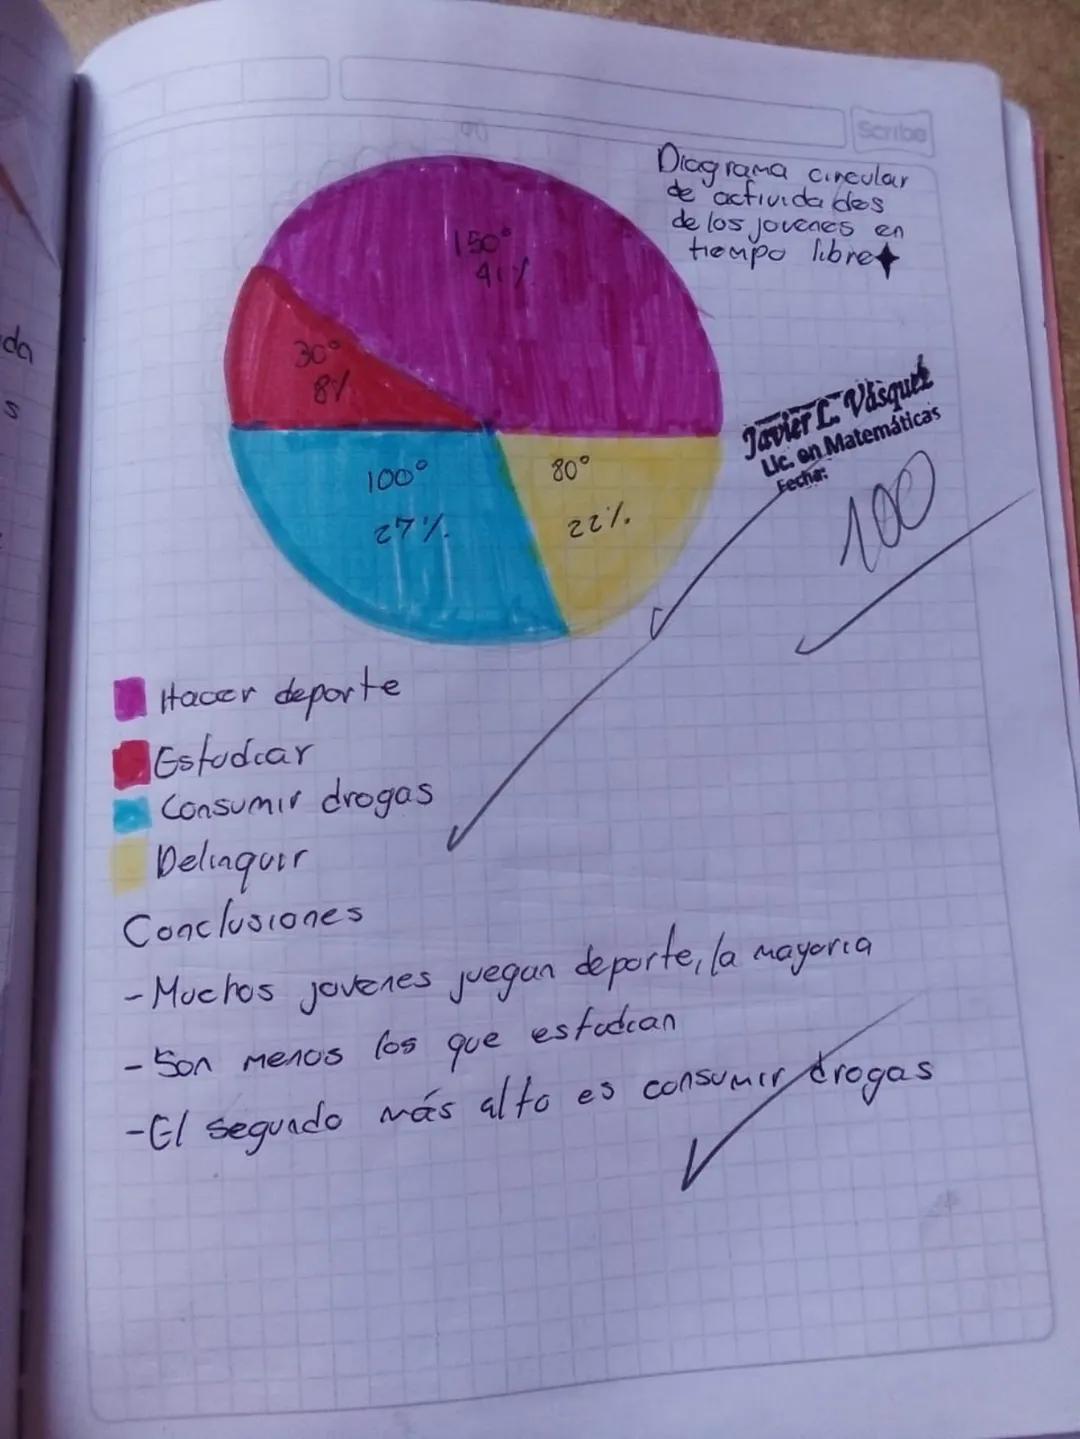 Scribe
Diagrama circular
de actividades
de los jovenes en
tiempo libre
150°
41%
30°
8%
100°
27%
80°
22%
Javier L. Vásquez
Lic. en Matemáticas
Fecha:
100
Hacer deporte
Estudiar
Consumir drogas
Delinquir
Conclusiones
- Muchos jovenes juegan deporte, la mayoria
- Son menos los que estudian
- El segundo más alto es consumir drogas
da
s